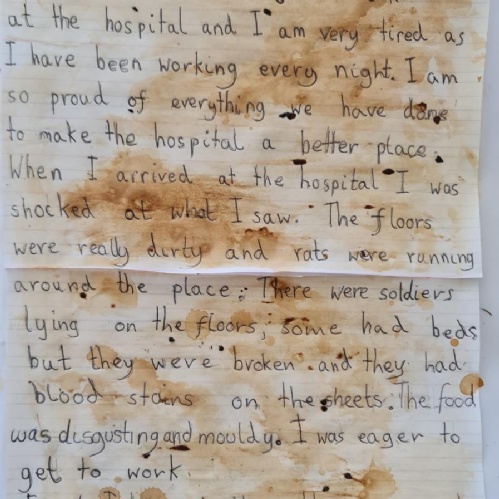 at the hospital and I am very tired as
I have been working every night. I am
so proud of everything we have done
to make the hospital a better place.
When I arrived at the hospital I was
shocked at what I saw. The floors
were really dirty and rats were running
around the place. There were soldiers
lying on the floors, some had beds
but they were broken and they had
blood stains on the sheets. The food
was disgusting and mouldy. I was eager to
get to work.